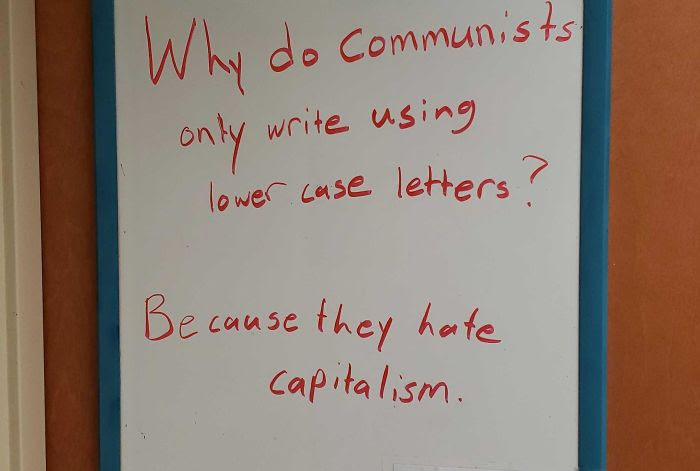 Why do Communists
only write using
lower case letters?
Because they hate
capitalism.